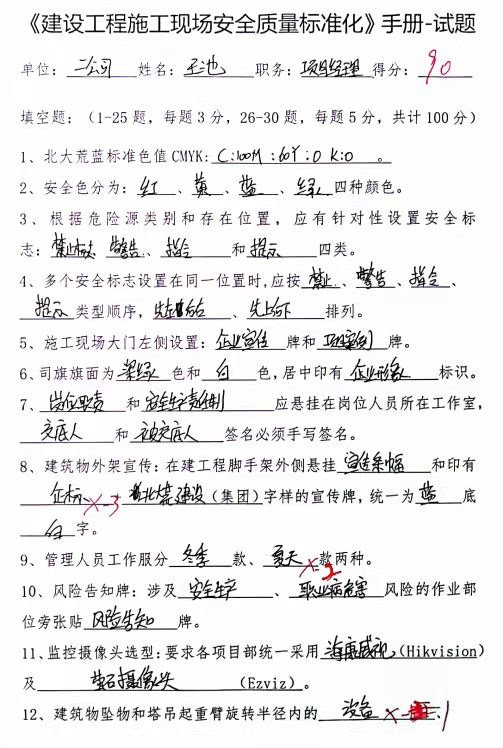 《建设工程施工现场安全质量标准化》手册-试题
单位：二公司 姓名：王池 职务：项目经理 得分：90
填空题：（1-25 题，每题 3 分，26-30 题，每题 5 分，共计 100 分）
1、北大荒蓝标准色值 CMYK：C:100M:60Y:0 K:0 。
2、安全色分为：红、黄、蓝、绿四种颜色。
3、根据危险源类别和存在位置，应有针对性设置安全标
志：禁止 警告、指令 和提示 四类。
4、多个安全标志设置在同一位置时，应按禁止、警告、指令、
提示类型顺序，先左后右、先上后下 排列。
5、施工现场大门左侧设置：企业宣传 牌和 项目案例 牌。
6、司旗旗面为深绿色和 白 色，居中印有企业形象 标识。
7、岗位职责 和安全生产责任制 应悬挂在岗位人员所在工作室，
交底人 和 被交底人 签名必须手写签名。
8、建筑物外架宣传：在建工程脚手架外侧悬挂 宣传条幅 和印有
企标 ×-3 北大荒建设（集团）字样的宣传牌，统一为 蓝 底
白 字。
9、管理人员工作服分 冬季 款、夏天 款两种。
×-2
10、风险告知牌：涉及 安全生产 、职业病危害 风险的作业部
位旁张贴 风险告知 牌。
11、监控摄像头选型：要求各项目部统一采用 海康威视（Hikvision）
及 萤石摄像头 （Ezviz）。
12、建筑物坠物和塔吊起重臂旋转半径内的 设备 ×-1